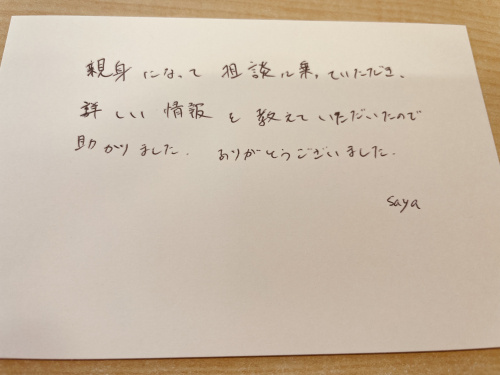 親身になって相談に乗っていただき、
詳しい情報を教えていただいたので
助かりました. ありがとうございました.
saya